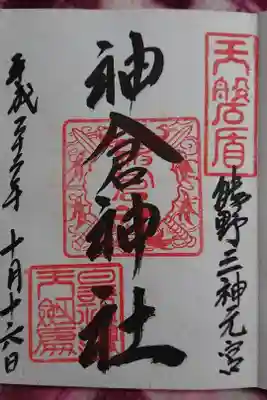 天磐盾
熊野三神元宮
神倉神社
平成二十六年 十月十六日